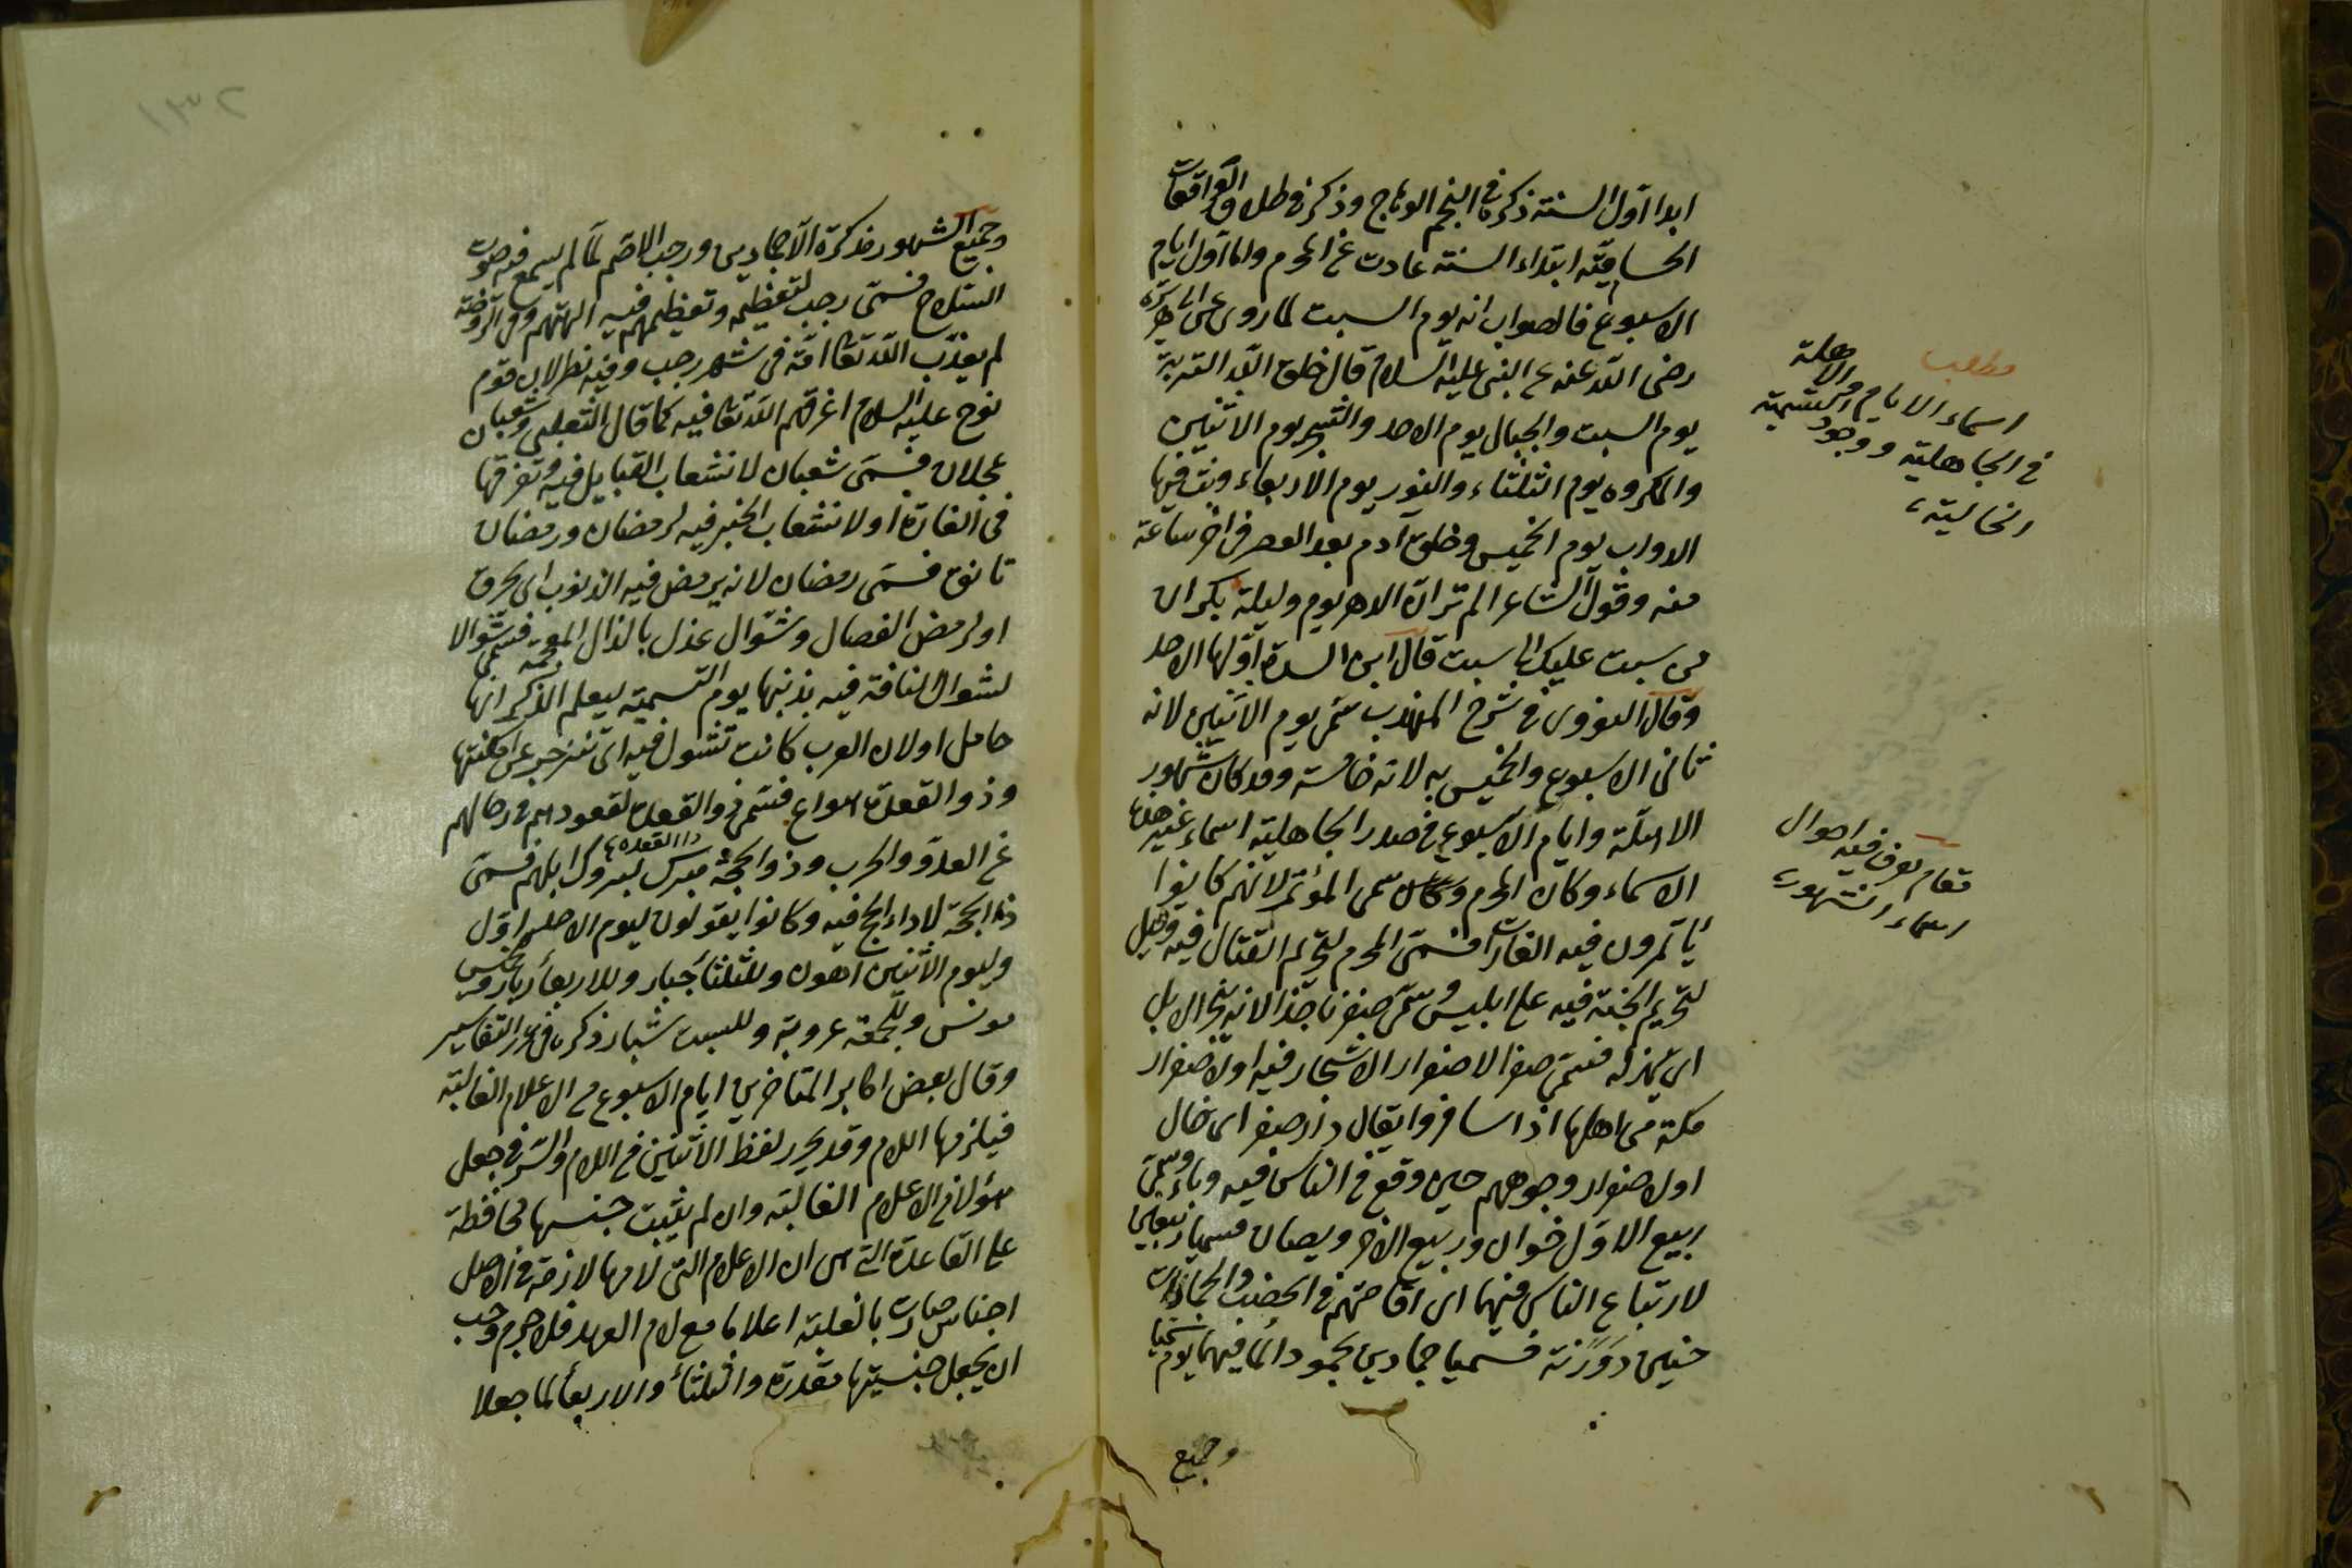 ابدا اول السنة ذكره في النجم الوهاج وذكر في طلاق الواقعات
الحسامية ابتداء السنة عادت غ المحرم واما اول ايام
الاسبوع فالصواب انه يوم السبت لما روى عن ابى هريرة
رضى الله عنه ع النبى عليه السلام قال خلق الله التربة
يوم السبت والجبال يوم الاحد والشجر يوم الاثنين
والمكروه يوم الثلثاء والنور يوم الاربعاء وبث فيها
الدواب يوم الخميس وخلق آدم بعد العصر فى اخر ساعة
منه وقول الشاعر الم تر ان الدهر يوم وليلة يكران
من سبت عليك الى سبت قال ابن السدة اولها الاحد
وقال النووى في شرح المهذب سمى يوم الاثنين لانه
ثانى الاسبوع والخميس به لانه خامسه وقد كان شهور
الاهلة وايام الاسبوع في صدر الجاهلية اسماء غير هذه
الاسماء وكان المحرم سمى المؤتمر لانهم كانوا
يأتمرون فيه الغارات فسمى المحرم لتحريم القتال فيه وقيل
لتحريم الجنة فيه على ابليس وسمى صفر ناجذا لانه ينجز الابل
اى يهزله فسمى صفرا لاصفرار الاشجار فيه اولاصفرار
مكة من اهلها اذا سافروا يقال دار صفر اى خال
اولاصفرار وجوههم حين وقع في الناس فيه وباء وسمى
ربيع الاول خوان وربيع الاخر وبصان فسميا ربيعين
لارتباع الناس فيهما اى اقامتهم في الخصب والجمادات
حنين ورنة فسميا جمادين لجمود الما فيهما يوم سميا
وجميع
مطلب
اسماء الايام والاهلة
في الجاهلية ووجود التسمية
الحالية
مقام يعرف فيه احوال
اسماء الشهور
وجميع الشهور مذكرة الا جمادين ورجب الاصم لما لم يسمع فيه صوت
السلاح فسمى رجب لتعظيمه وتعظيمهم فيه الهتهم وفى الروضة
لم يعذب الله تعا امة فى شهر رجب وفيه نظر لان قوم
نوح عليه السلام اغرقهم الله تعا فيه كما قال الثعلبى وشعبان
عجلان فسمى شعبان لانشعاب القبايل فيه وتفرقها
فى الغارة اولانشعاب الخير فيه لرمضان ورمضان
تانق فسمى رمضان لانه يرمض فيه الذنوب اى يحرق
اولرمض الفصال وشوال عذل بالذال المعجمة فسمى شوالا
لشوال الناقة فيه بذنبها يوم التسمية ليعلم الذكر انها
حامل اولان العرب كانت تشول فيه اى تنزحج عن امكنتها
وذو القعدة اسواع فسمى ذوالقعدة لقعودهم في رحالهم
غ العدو والحرب وذوالحجة مبرك لبروك ابلهم فسمى
ذا القعدة
ذا الحجة لاداء الحج فيه وكانوا يقولون ليوم الاحد اول
وليوم الاثنين اهون وللثلثا جبار وللاربعا دبار وللخميس
مونس وللجمعة عروبة وللسبت شبار ذكره في التفاسير
وقال بعض اكابر المتاخرين ايام الاسبوع من الاعلام الغالبة
فيلزمها اللام وقد يجرد لفظ الاثنين غ اللام والسر في جعل
هؤلا في الاعلام الغالبة وان لم يثبت جنسها محافظة
على القاعدة التى هى ان الاعلام التى لامها لازمة في الاصل
اجناس صارت بالغلبة اعلاما مع لام العهد فلا جرم وجب
ان يجعل جنسيتها مقدرة والثلثا والاربعا لما جعلا